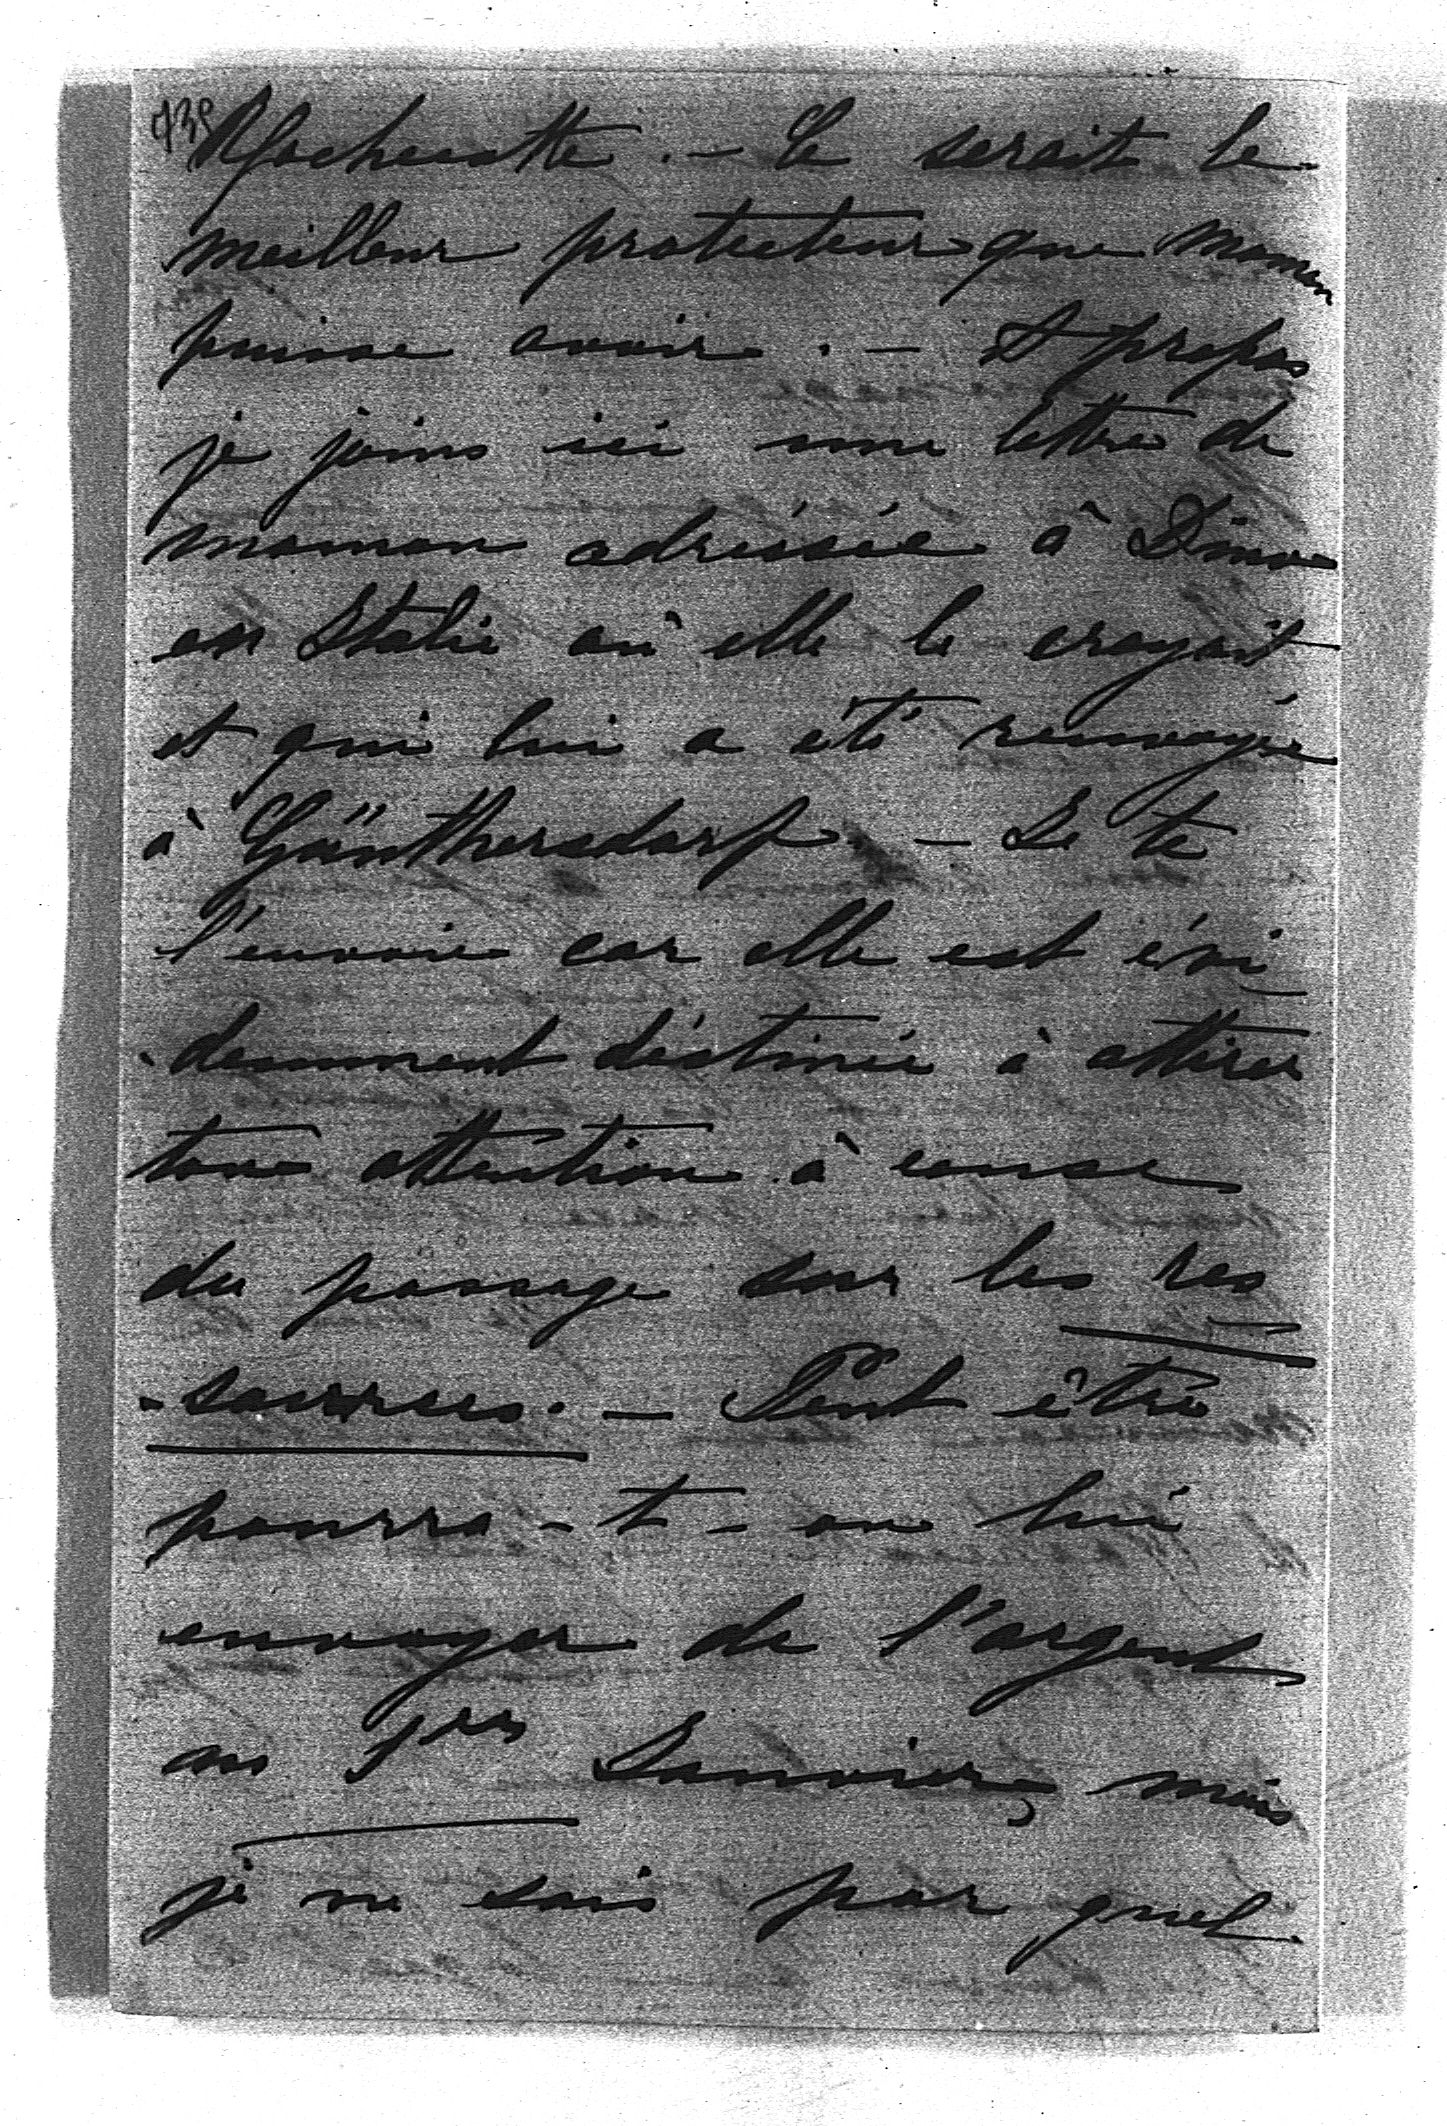 439
Rochecotte. – Ce serait le
meilleur protecteur que maman
puisse avoir. – A propos
je joins ici une lettre de
maman adressée à Dino
en Italie où elle le croyait
et qui lui a été renvoyée
à Günthersdorf. – Je te
l'envoie car elle est évi
-demment déstinée à attirer
ton attention à cause
du passage sur les res
-sources. – Peut être
pourra-t-on lui
envoyer de l'argent
au 1er Janvier, mais
je ne sais par quel